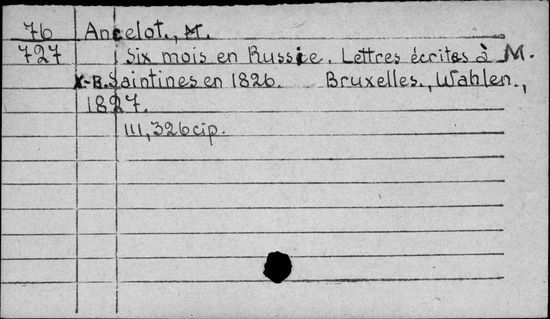 76 Ancelot., M.
727 Six mois en Russie. Lettres écrites à M.
X.-B. Saintines en 1826. Bruxelles., Wahlen.,
1827.
III, 326 cip.